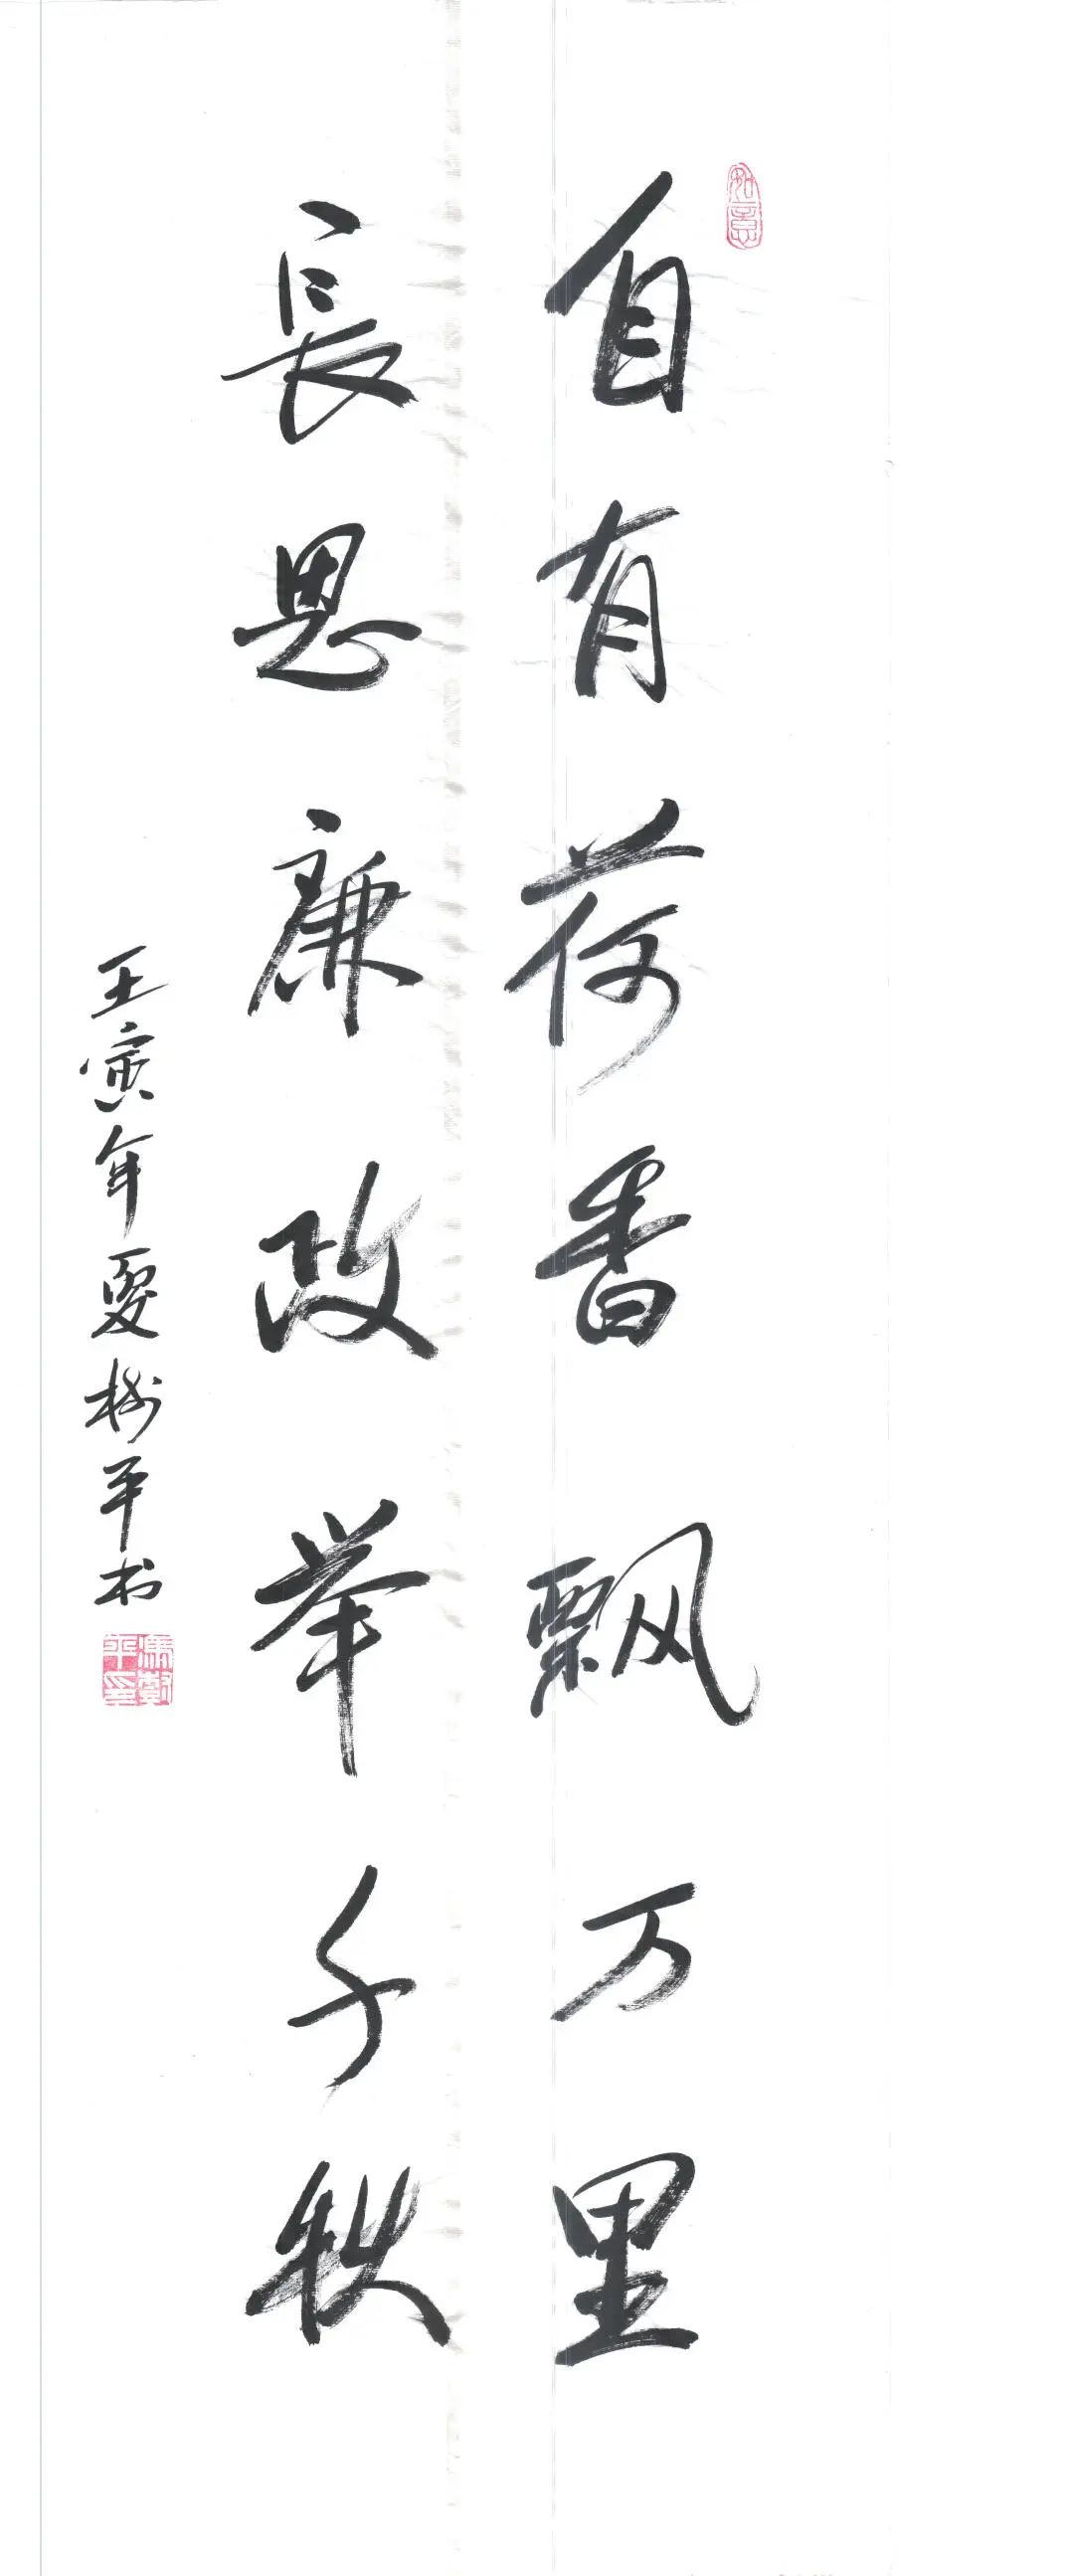 自有荷香飘万里
長思廉政举千秋
壬寅年夏树平书
如意